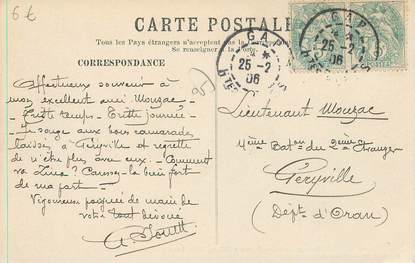 6 €
CARTE POSTALE
Tous les Pays étrangers n'acceptent pas la Correspondance
Se renseigner à la Poste.
CORRESPONDANCE
GAP
25-2
06
GAP
25-2
06
Affectueux souvenir à
mon excellent ami Mouzac.
Triste temps. Triste journée.
Je songe aux bons camarades
laissés à Géryville et regrette
de n'être plus avec eux. Comment
va Lina? Caressez-la bien fort
de ma part.
Vigoureuse poignée de main de
votre tout dévoué
Lieutenant Mouzac
4ème Baton du 2ème Etranger
Géryville
(Dépt d'Oran)